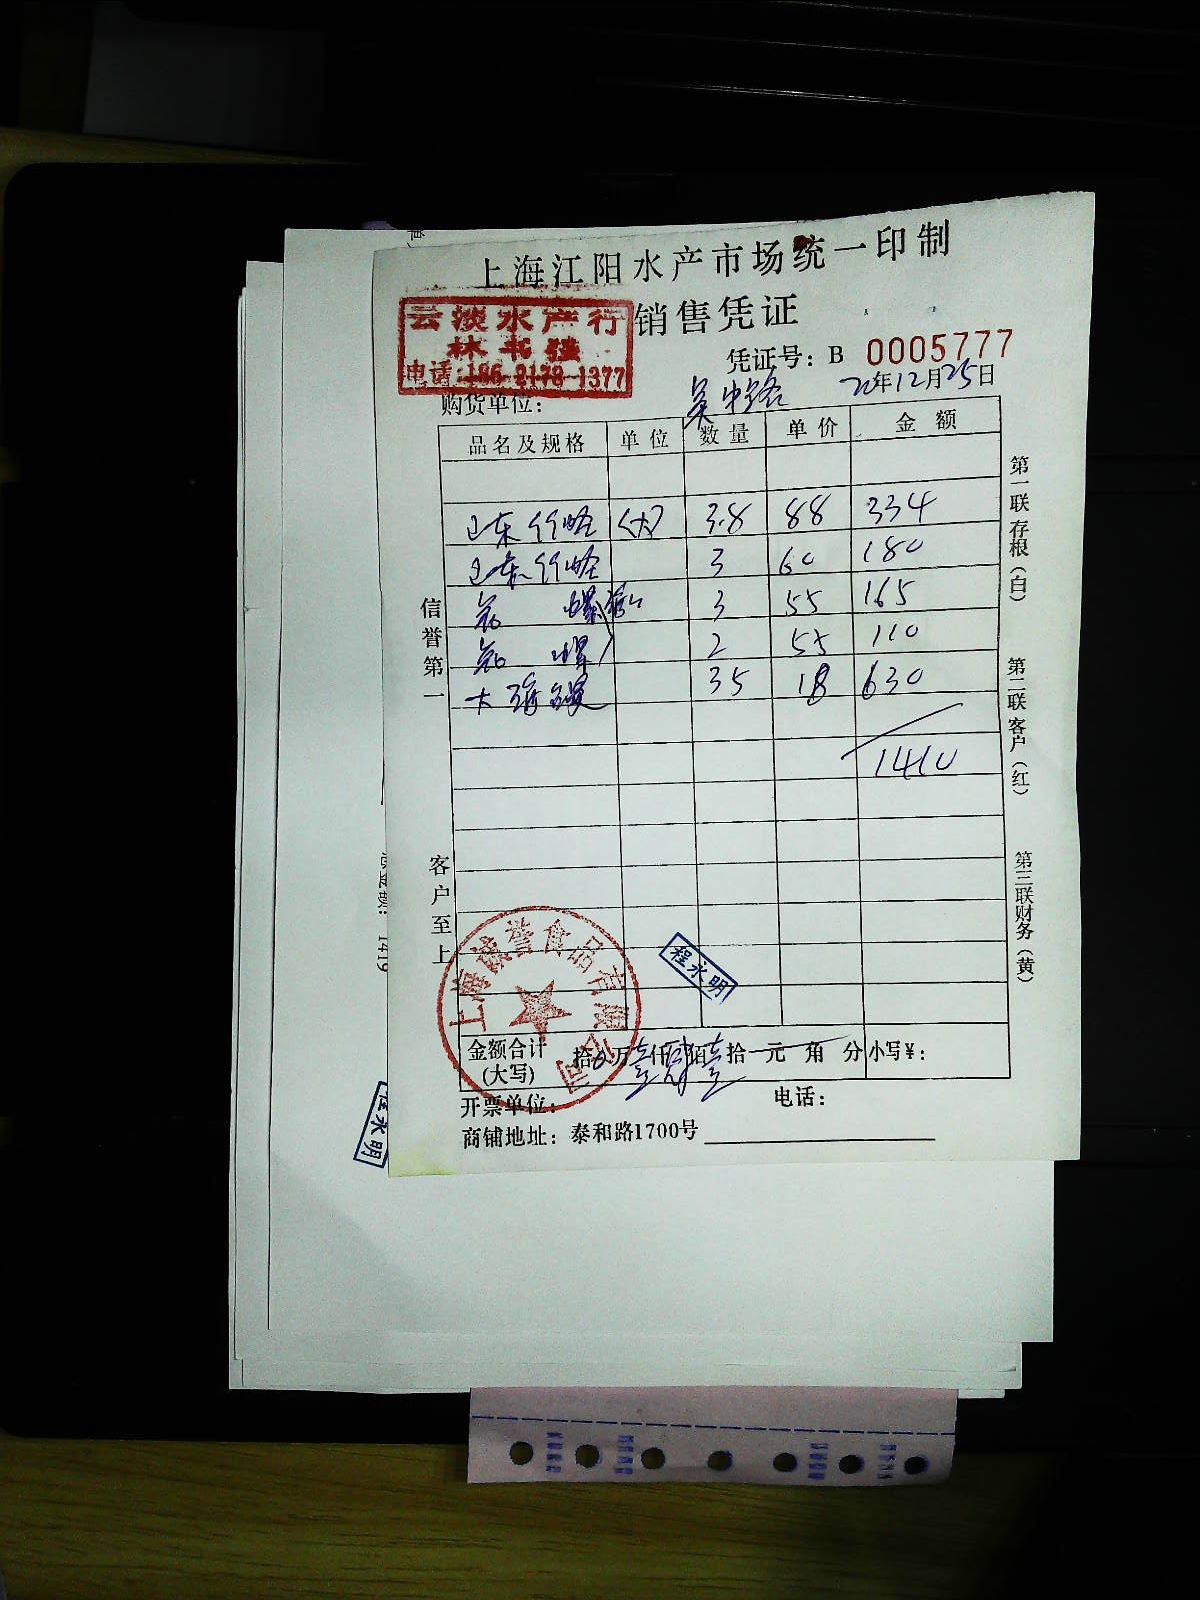 上海江阳水产市场统一印制
销售凭证
云淡水产行
电话:186-2178-1377
凭证号：B 0005777
吴中路 22年12月25日
购货单位：
品名及规格 单位 数量 单价 金额
山东竹蛏 (大) 3.8 88 334
山东竹蛏 3 60 180
螺 3 55 165
螺 2 55 110
35 18 630
1410
信誉第一
客户至上
第一联存根(白)
第二联客户(红)
第三联财务(黄)
上海诚誉食品有限公司
程永明
金额合计(大写) 拾 万壹仟肆佰壹拾 元 角 分 小写¥：
开票单位： 电话：
商铺地址：泰和路1700号
程永明
1419